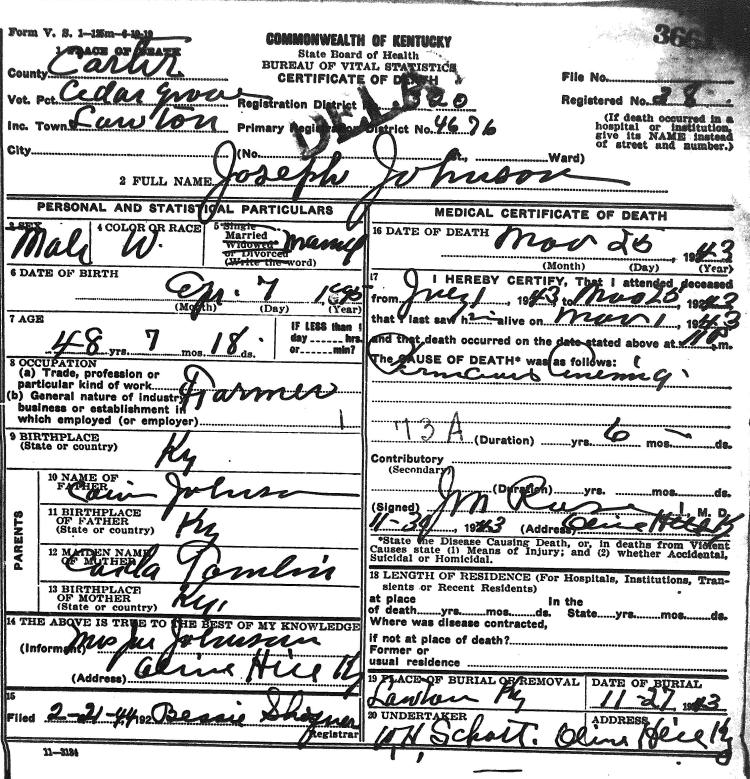 Form V. S. 1-125m-6-19-19
COMMONWEALTH OF KENTUCKY
State Board of Health
BUREAU OF VITAL STATISTICS
CERTIFICATE OF DEATH
DELA
1 PLACE OF DEATH
County Carter
Vot. Pct. Cedar Grove
Inc. Town Lawton
City
Registration District 320
Primary Registration District No. 4676
(No. St., Ward)
File No.
Registered No. 38
(If death occurred in a
hospital or institution,
give its NAME instead
of street and number.)
2 FULL NAME Joseph Johnson
PERSONAL AND STATISTICAL PARTICULARS
3 SEX Male
4 COLOR OR RACE W.
5 Single
Married
Widowed
or Divorced
(Write the word)
6 DATE OF BIRTH Apr. 7
(Month) (Day) (Year)
7 AGE 48 yrs. 7 mos. 18 ds.
IF LESS than 1
day ----- hrs.
or ----- min?
8 OCCUPATION
(a) Trade, profession or
particular kind of work Farmer
(b) General nature of industry
business or establishment in
which employed (or employer)
9 BIRTHPLACE
(State or country) Ky
PARENTS
10 NAME OF
FATHER Johnson
11 BIRTHPLACE
OF FATHER
(State or country) Ky
12 MAIDEN NAME
OF MOTHER Tomlin
13 BIRTHPLACE
OF MOTHER
(State or country) Ky.
14 THE ABOVE IS TRUE TO THE BEST OF MY KNOWLEDGE
(Informant) Mrs Joe Johnson
(Address) Olive Hill Ky
15
Filed 2-21-44 192 Bessie
Registrar
11-3184
MEDICAL CERTIFICATE OF DEATH
16 DATE OF DEATH Nov 25, 1943
(Month) (Day) (Year)
17 I HEREBY CERTIFY, That I attended deceased
from 1, 1943 to Nov 25, 1943
that I last saw h alive on Nov 1, 1943
and that death occurred on the date stated above at m.
The CAUSE OF DEATH* was as follows:
Pernicious Anemia
73A
(Duration) yrs. 6 mos. – ds.
Contributory
(Secondary)
(Duration) yrs. mos. ds.
(Signed) M. D.
11-30, 1943 (Address) Olive Hill Ky
*State the Disease Causing Death, or, in deaths from Violent
Causes state (1) Means of Injury; and (2) whether Accidental,
Suicidal or Homicidal.
18 LENGTH OF RESIDENCE (For Hospitals, Institutions, Tran-
sients or Recent Residents)
at place In the
of death yrs. mos. ds. State yrs. mos. ds.
Where was disease contracted,
if not at place of death?
Former or
usual residence
19 PLACE OF BURIAL OR REMOVAL
Lawton Ky
DATE OF BURIAL
11-27 1943
20 UNDERTAKER
ADDRESS
Olive Hill Ky